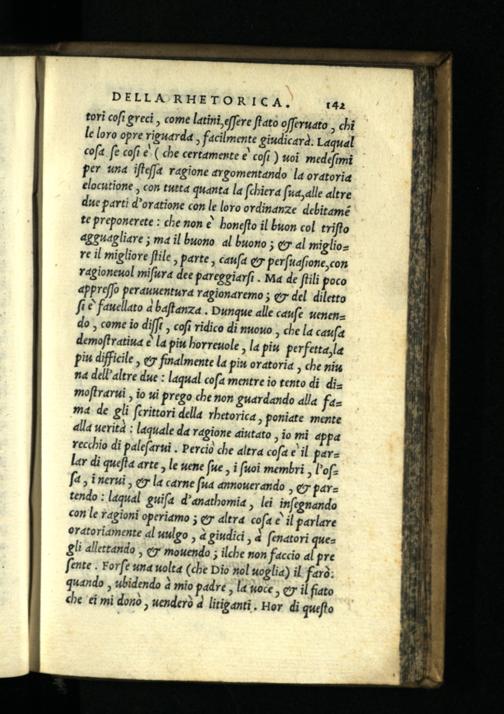 DELLA RHETORICA. 142
tori cosi greci, come latini, essere stato osseruato, chi
le loro opre riguarda, facilmente giudicarà. Laqual
cosa se cosi è (che certamente è cosi) uoi medesimi
per una istessa ragione argomentando la oratoria
elocutione, con tutta quanta la schiera sua, alle altre
due parti d'oratione con le loro ordinanze debitamē
te preponerete: che non è honesto il buon col tristo
agguagliare; ma il buono al buono; & al miglio=
re il migliore stile, parte, causa & persuasione, con
ragioneuol misura dee pareggiarsi. Ma de stili poco
appresso perauuentura ragionaremo; & del diletto
si è fauellato à bastanza. Dunque alle cause uenen=
do, come io dissi, cosi ridico di nuouo, che la causa
demostratiua è la piu horreuole, la piu perfetta, la
piu difficile, & finalmente la piu oratoria, che niu
na dell'altre due: laqual cosa mentre io tento di di=
mostrarui, io ui prego che non guardando alla fa=
ma de gli scrittori della rhetorica, poniate mente
alla uerità: laquale da ragione aiutato, io mi appa
recchio di palesarui. Perciò che altra cosa è il par=
lar di questa arte, le uene sue, i suoi membri, l'os=
sa, i nerui, & la carne sua annouerando, & par=
tendo: laqual guisa d'anathomia, lei insegnando
con le ragioni operiamo; & altra cosa è il parlare
oratoriamente al uulgo, à giudici, à senatori que=
gli allettando, & mouendo; ilche non faccio al pre
sente. Forse una uolta (che Dio nol uoglia) il farò:
quando, ubidendo à mio padre, la uoce, & il fiato
che ei mi donò, uenderò à litiganti. Hor di questo